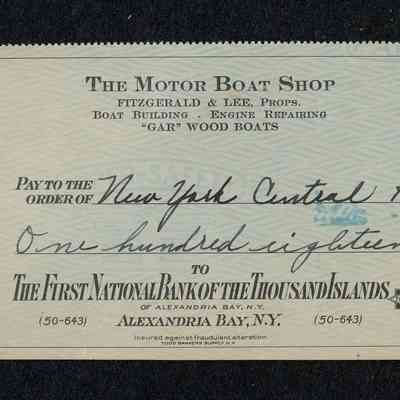 THE MOTOR BOAT SHOP
FITZGERALD & LEE, PROPS.
BOAT BUILDING - ENGINE REPAIRING
"GAR" WOOD BOATS
PAY TO THE
ORDER OF New York Central
One hundred eighteen
TO
THE FIRST NATIONAL BANK OF THE THOUSAND ISLANDS
OF ALEXANDRIA BAY, N.Y.
(50-643) ALEXANDRIA BAY, N.Y. (50-643)
Insured against fraudulent alteration
TODD BANKERS SUPPLY N.Y.